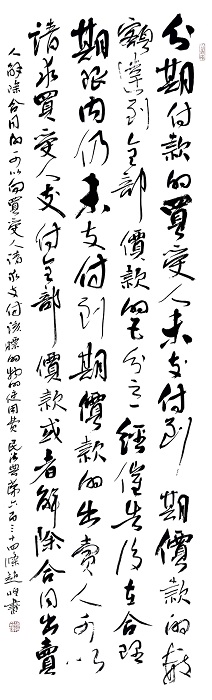 分期付款的買受人未支付到期價款的數
額達到全部價款的五分之一經催告後在合理
期限内仍未支付到期價款的出賣人可以
請求買受人支付全部價款或者解除合同出賣
人解除合同的可以向買受人請求支付該標的物的使用費民法典第六百三十四條書